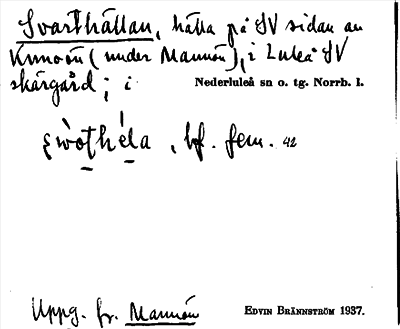 Svarthällan, hälla på SV sidan av
Kunoön (under Mannön), i Luleå SV
skärgård; i
Nederluleå sn o. tg. Norrb. l.
bf. fem. 42
Uppg. fr. Mannön
EDVIN BRÄNNSTRÖM 1937.